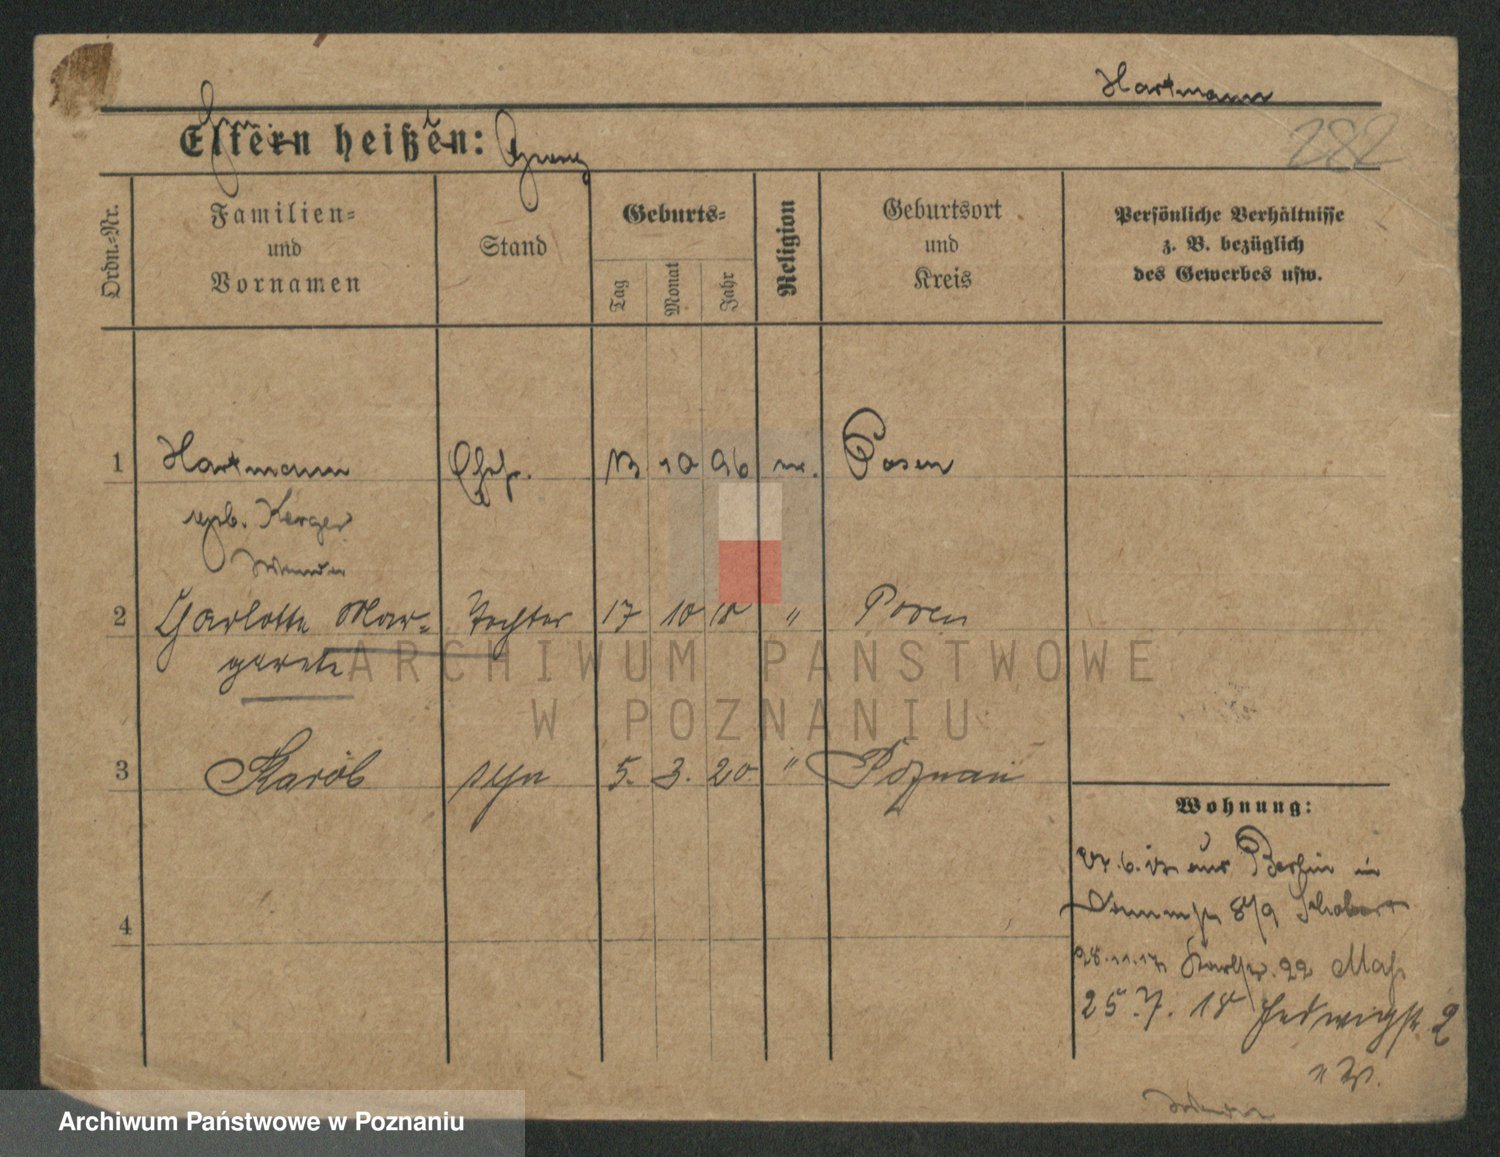 Hartmann
282
Eltern heißen: Franz
Ordn.-Nr.
Familien-
und
Vornamen
Stand
Geburts-
Tag
Monat
Jahr
Religion
Geburtsort
und
Kreis
Persönliche Verhältnisse
z. B. bezüglich
des Gewerbes usw.
1 Hartmann Ehefr. 13 10 96 Posen
geb. Kerger
2 Charlotte Mar- Tochter 17 10 18 " Posen
garete
3 Karol syn 5. 3. 20. " Poznań
4
Wohnung:
aus Berlin in
8/9
28.11.17 22
25.7.18 Hedwigstr. 2
ARCHIWUM PAŃSTWOWE
W POZNANIU
Archiwum Państwowe w Poznaniu